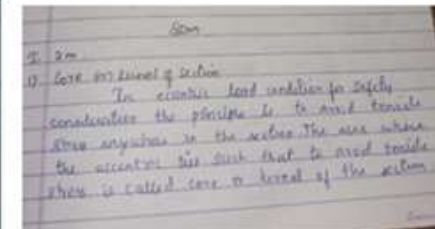 Som
I. 2m
1) Core or kernel of section
In eccentric load condition for safety
consideration the principle is to avoid tensile
stress anywhere in the section. The area where
the eccentric lies such that to avoid tensile
stress is called core or kernel of the section